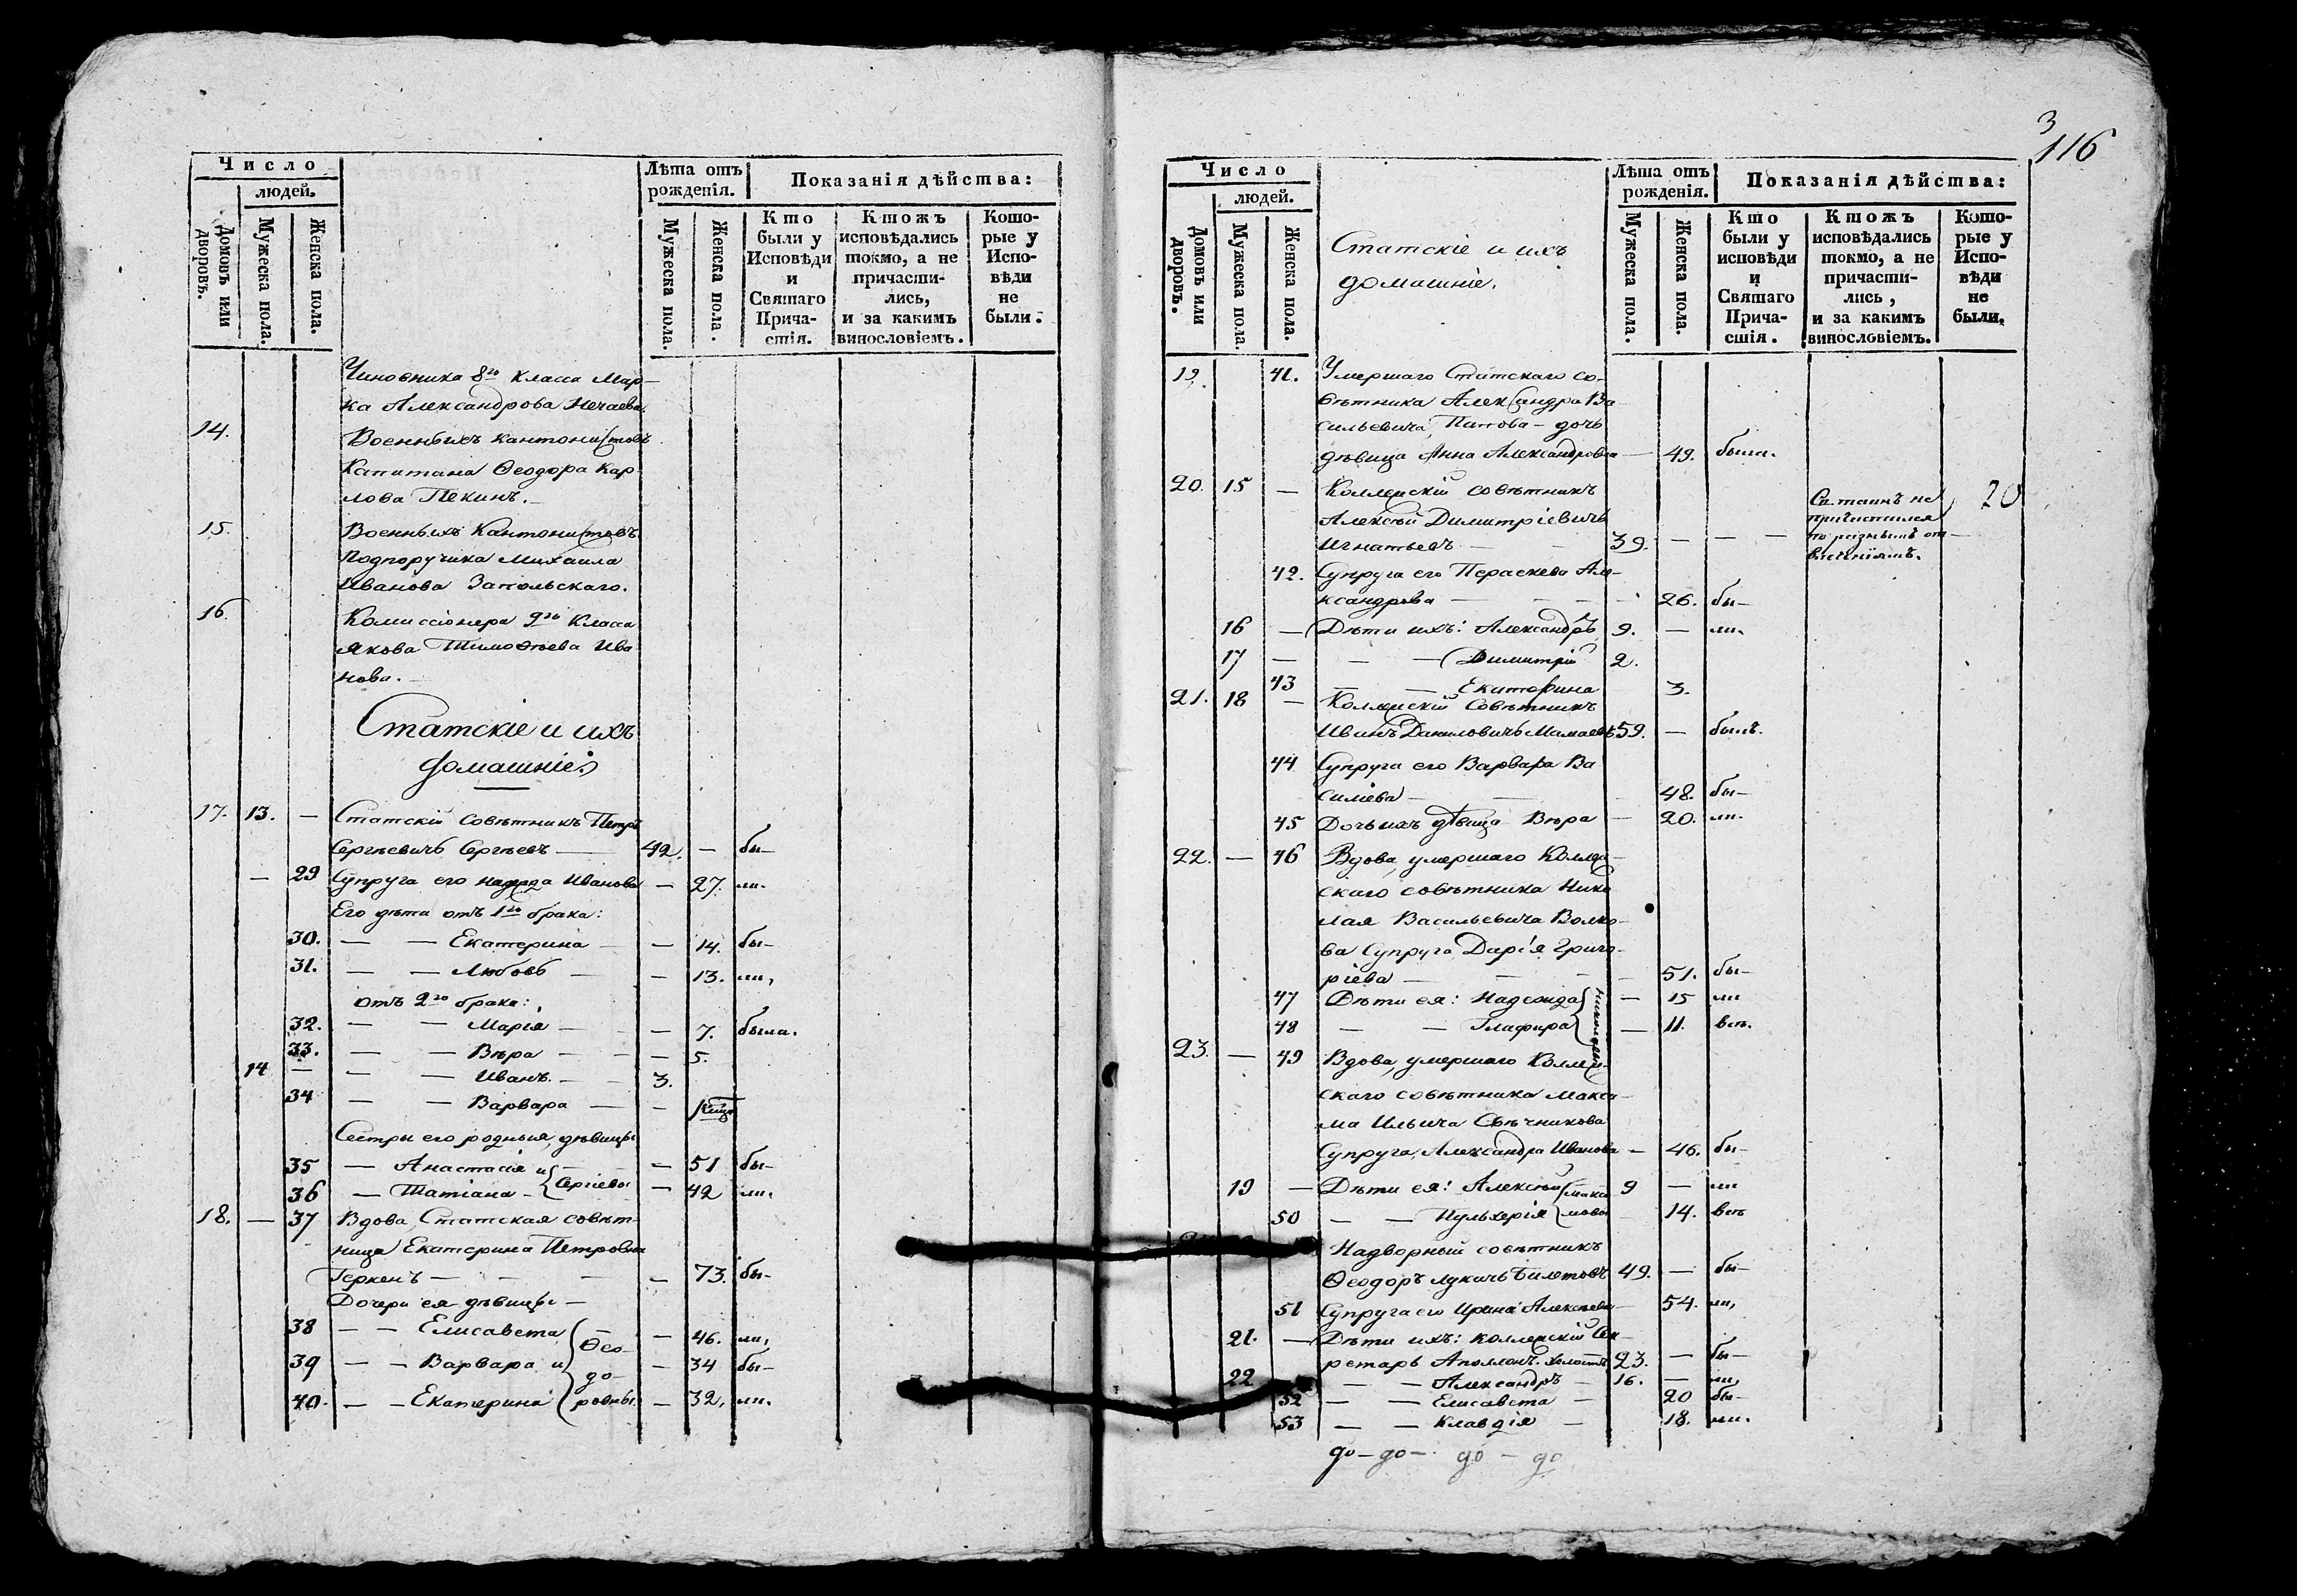 Число
людей.
Домовъ или дворовъ.
Мужеска пола.
Женска пола.
Лѣта отъ рожденія.
Мужеска пола.
Женска пола.
Показанія дѣйства:
Кто были у Исповѣди и Святаго Прича-стія.
Ктожъ исповѣдались токмо, а не причасти-лись, и за какимъ винословіемъ.
Кото-рые у Испо-вѣди не были.
Чиновника 8го класса Мар-
ка Александрова Нечаева.
14. Военныхъ кантонистовъ
Капитана Ѳеодора Кар-
лова Пекинъ.
15. Военныхъ Кантонистовъ
Подпоручика Михаила
Иванова Запольскаго.
16. Комиссіонера 9го Класса
Якова Тимоѳеева Ива
нова.
Статскіе и ихъ
домашніе.
17. 13. — Статскій совѣтникъ Петръ
Сергѣевичъ Сергѣевъ — 42. — бы-
— 29 Супруга его Надежда Иванова — 27. ли.
Его дѣти отъ 1го брака:
30. — — Екатерина — — 14. бы-
31. — — Любовь — — 13. ли,
отъ 2го брака:
32. — — Марія — — 7. была.
33. — — Вѣра — — 5.
14 — — — Иванъ. — 3.
34 — — Варвара — —
Сестры его родныя, дѣвицы
35 — Анастасія и — 51 бы-
36 — Татіана — Сергіевы — 42 ли.
18. — 37 Вдова, Статская совѣт-
ница Екатерина Петровна
Геркенъ — — — — 73. бы-
Дочери ея дѣвицы —
38 — — Елисавета Ѳео- — 46. ли,
39 — — Варвара и до- — 34 бы-
40. — — Екатерина ровны. — 32, ли.
3
116
Число
людей.
Домовъ или дворовъ.
Мужеска пола.
Женска пола.
Статскіе и ихъ
домашніе.
Лѣта отъ рожденія.
Мужеска пола.
Женска пола.
Показанія дѣйства:
Кто были у исповѣди и Святаго Прича-стія.
Ктожъ исповѣдались токмо, а не причасти-лись, и за какимъ винословіемъ.
Кото-рые у Испо-вѣди не были.
19. 41. Умершаго Статскаго со-
вѣтника Александра Ва
сильевича, Панова — дочь
дѣвица Анна Александровна — 49. была.
20. 15 — Коллежскій совѣтникъ
Алексѣй Димитріевичъ
Игнатьевъ — 39. — — —
Св. таинъ не
причастился
по разнымъ от-
20
42. Супруга его Параскева Але-
ксандрова — — — 26. бы-
16 — Дѣти ихъ: Александръ 9. — ли.
17 — — — Димитрій 2.
43 — — Екатерина 3.
21. 18 — Коллежскій Совѣтникъ
Иванъ Даниловичъ Мамаевъ 59. — былъ.
44 Супруга его Варвара Ва
силіева — — 48. бы-
45 Дочь ихъ дѣвица Вѣра — 20. ли.
22. — 46 Вдова, умершаго Коллеж-
скаго совѣтника Нико
лая Васильевича Волко-
ва Супруга Дарія Григо-
ріева — — — 51. бы-
47 Дѣти ея: Надежда — 15 ли
48 — — Глафира — 11. всѣ.
23. — 49 Вдова, умершаго Коллеж-
скаго совѣтника Макси-
ма Ильича Свѣчникова
Супруга, Александра Иванова — 46. бы-
19 — Дѣти ея: Алексѣй Макси 9 — ли
50 — — Пульхерія мовы 14. всѣ
Надворный совѣтникъ
Ѳеодоръ Лукичъ Билетовъ 49. — бы-
51 Супруга его Ирина Алексѣева — 54. ли,
21. — Дѣти ихъ: коллежскій Сек-
ретарь Аполлонъ. холостъ 23. — бы-
22 — — Александръ — 16. — ли,
52 — — Елисавета — 20 бы-
53 — — Клавдія — 18. ли.
до — до — до — до